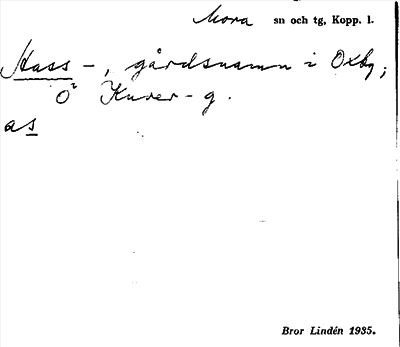 Mora sn och tg, Kopp. l.
Hass -, gårdsnamn i Oxby;
Knver - g.
as
Bror Lindén 1935.